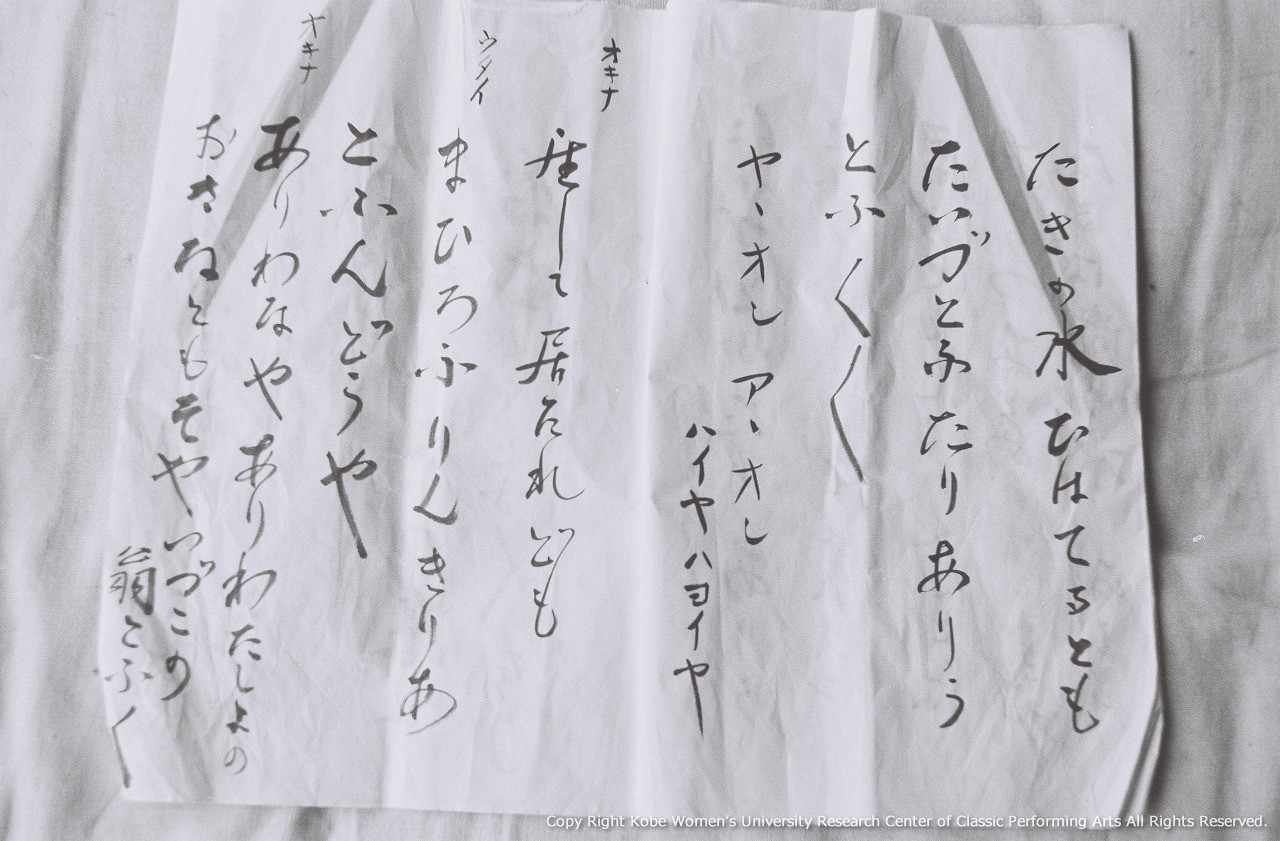 たきの水ひはてるとも
たいづとふたりありう
とふ〱〱
ヤヽオしアヽオし
ハイヤハヨイヤ
オキナ
座して居たれども
ウタイ
まひろふりんきりあ
とふんどうや
オキナ
ありわなやありわたしよの
おさなともそやいづこの
翁とふ〱
Copy Right Kobe Women's University Research Center of Classic Performing Arts All Rights Reserved.